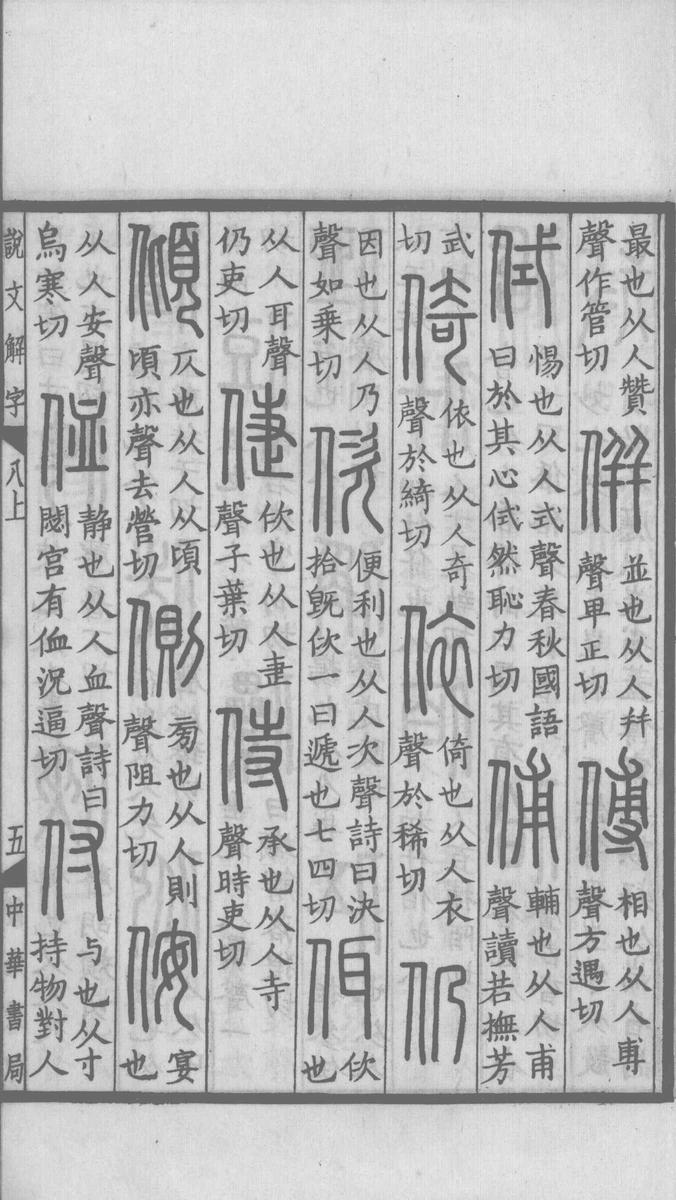 最也从人贊聲作管切倂並也从人幷聲卑正切傅相也从人尃聲方遇切
侙惕也从人式聲春秋國語曰於其心侙然恥力切俌輔也从人甫聲讀若撫芳
武切倚依也从人奇聲於綺切依倚也从人衣聲於稀切仍
因也从人乃聲如乘切佽便利也从人次聲詩曰決拾旣佽一曰遞也七四切佴佽也
从人耳聲仍吏切倢佽也从人疌聲子葉切侍承也从人寺聲時吏切
傾仄也从人从頃頃亦聲去營切側㫄也从人則聲阻力切侒宴也
从人安聲烏寒切侐静也从人血聲詩曰閟宮有侐況逼切付与也从寸持物對人
說文解字 八上 五 中華書局